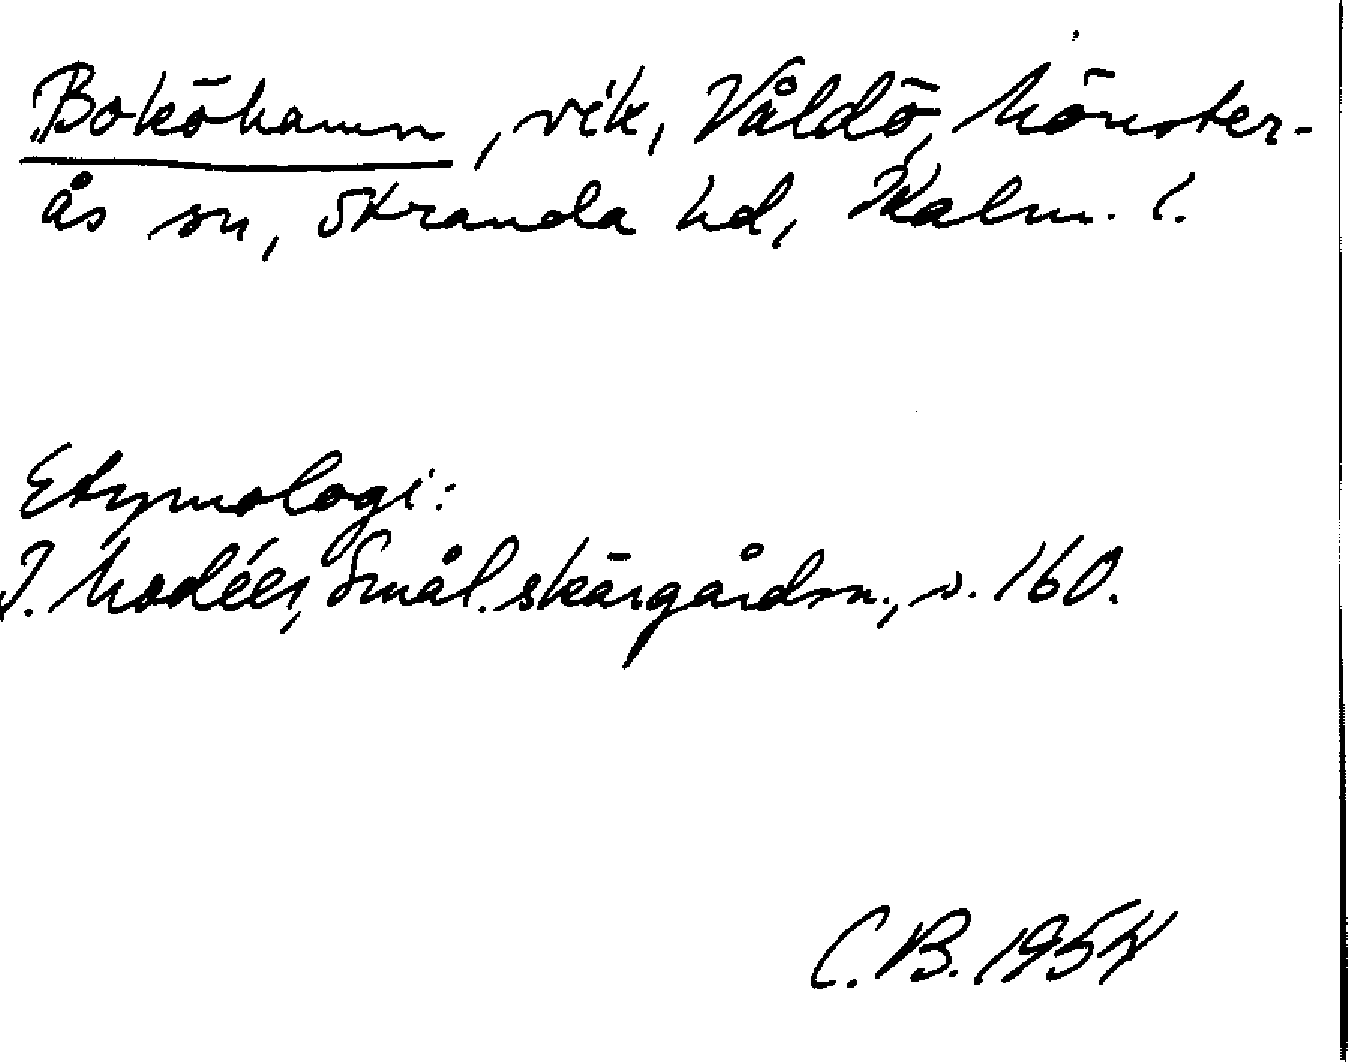 Boköhamn, vik, Våldö, Mönster-
ås sn, Stranda hd, Kalm. l.
Etymologi:
I. Modéer, Smål. skärgårdsn., s. 160.
C. B. 1954